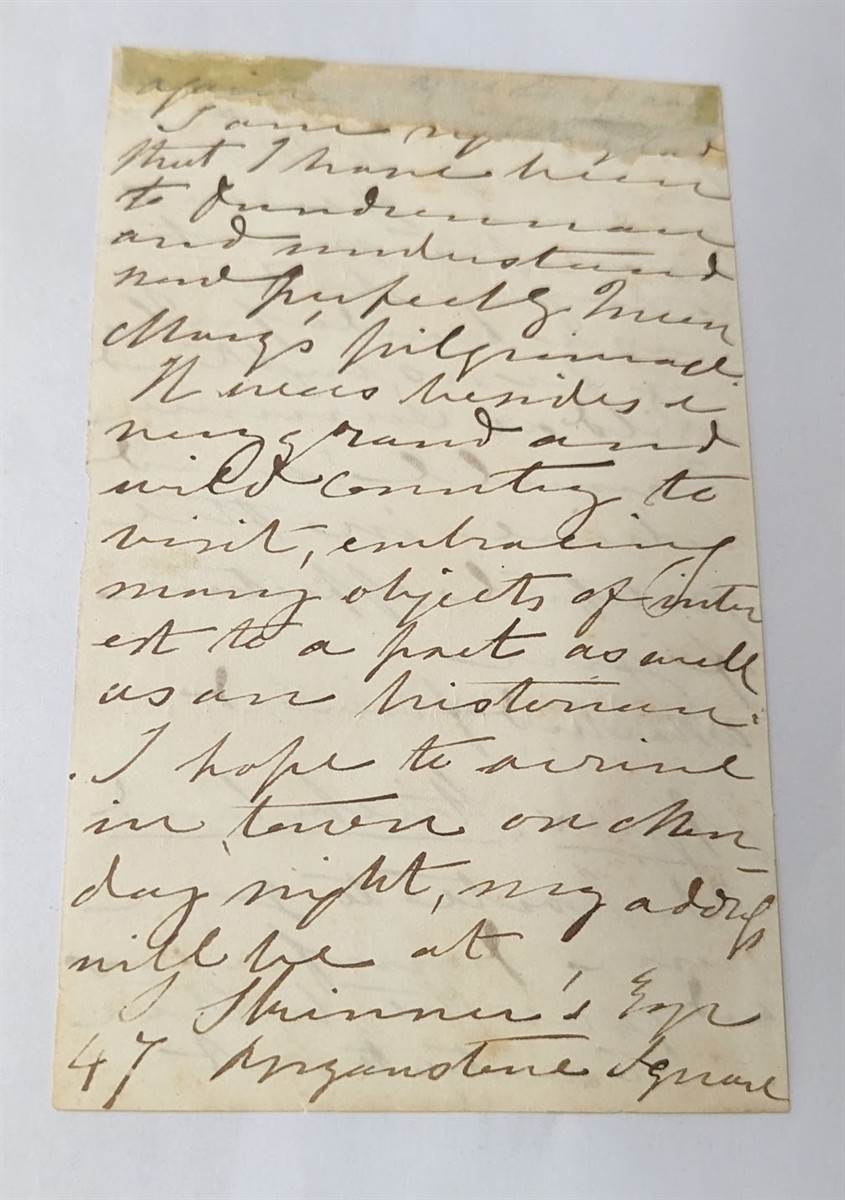 again
I am very glad
that I have been
to Dundrennan
and understand
now perfectly Queen
Mary's pilgrimage.
It was besides a
very grand and
wild country to
visit, embracing
many objects of inter
est to a poet as well
as an historian.
I hope to arrive
in town on Mon-
day night, my address
will be at
Skinner's Esqr
47 Square